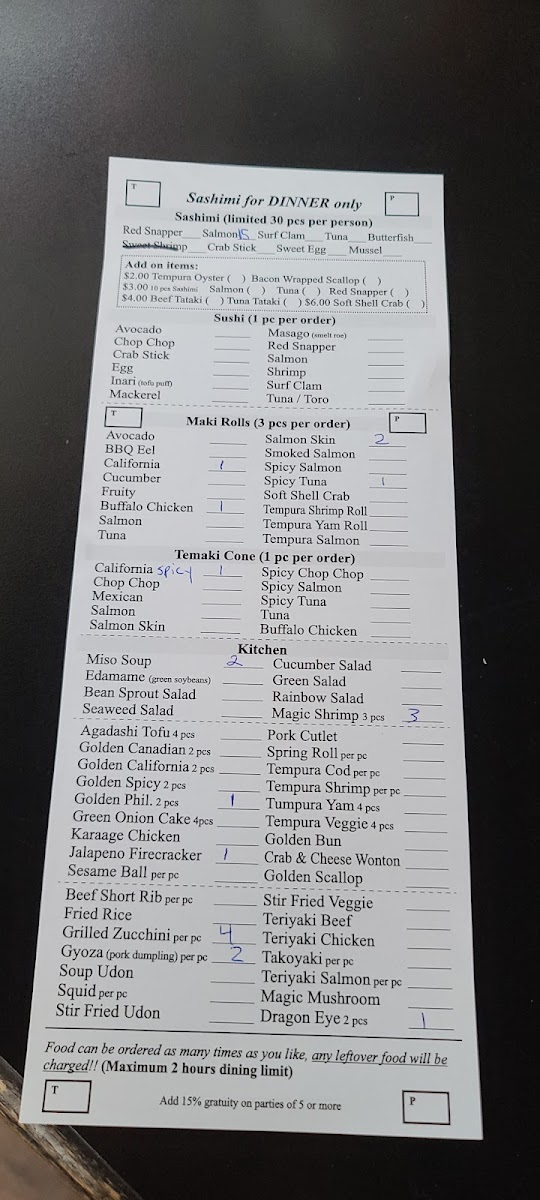 T
P
Sashimi for DINNER only
Sashimi (limited 30 pcs per person)
Red Snapper___ Salmon 15 Surf Clam___ Tuna___ Butterfish___
Sweet Shrimp Crab Stick___ Sweet Egg___ Mussel___
Add on items:
$2.00 Tempura Oyster ( ) Bacon Wrapped Scallop ( )
$3.00 10 pcs Sashimi Salmon ( ) Tuna ( ) Red Snapper ( )
$4.00 Beef Tataki ( ) Tuna Tataki ( ) $6.00 Soft Shell Crab ( )
Sushi (1 pc per order)
Avocado ____ Masago (smelt roe) ____
Chop Chop ____ Red Snapper ____
Crab Stick ____ Salmon ____
Egg ____ Shrimp ____
Inari (tofu puff) ____ Surf Clam ____
Mackerel ____ Tuna / Toro ____
T
Maki Rolls (3 pcs per order)
P
Avocado ____ Salmon Skin 2
BBQ Eel ____ Smoked Salmon ____
California 1 Spicy Salmon ____
Cucumber ____ Spicy Tuna 1
Fruity ____ Soft Shell Crab ____
Buffalo Chicken 1 Tempura Shrimp Roll ____
Salmon ____ Tempura Yam Roll ____
Tuna ____ Tempura Salmon ____
Temaki Cone (1 pc per order)
California spicy 1 Spicy Chop Chop ____
Chop Chop ____ Spicy Salmon ____
Mexican ____ Spicy Tuna ____
Salmon ____ Tuna ____
Salmon Skin ____ Buffalo Chicken ____
Kitchen
Miso Soup 2 Cucumber Salad ____
Edamame (green soybeans) ____ Green Salad ____
Bean Sprout Salad ____ Rainbow Salad ____
Seaweed Salad ____ Magic Shrimp 3 pcs 3
Agadashi Tofu 4 pcs ____ Pork Cutlet ____
Golden Canadian 2 pcs ____ Spring Roll per pc ____
Golden California 2 pcs ____ Tempura Cod per pc ____
Golden Spicy 2 pcs ____ Tempura Shrimp per pc ____
Golden Phil. 2 pcs 1 Tumpura Yam 4 pcs ____
Green Onion Cake 4pcs ____ Tempura Veggie 4 pcs ____
Karaage Chicken ____ Golden Bun ____
Jalapeno Firecracker 1 Crab & Cheese Wonton ____
Sesame Ball per pc ____ Golden Scallop ____
Beef Short Rib per pc ____ Stir Fried Veggie ____
Fried Rice ____ Teriyaki Beef ____
Grilled Zucchini per pc 4 Teriyaki Chicken ____
Gyoza (pork dumpling) per pc 2 Takoyaki per pc ____
Soup Udon ____ Teriyaki Salmon per pc ____
Squid per pc ____ Magic Mushroom ____
Stir Fried Udon ____ Dragon Eye 2 pcs 1
Food can be ordered as many times as you like, any leftover food will be
charged!! (Maximum 2 hours dining limit)
T
Add 15% gratuity on parties of 5 or more
P